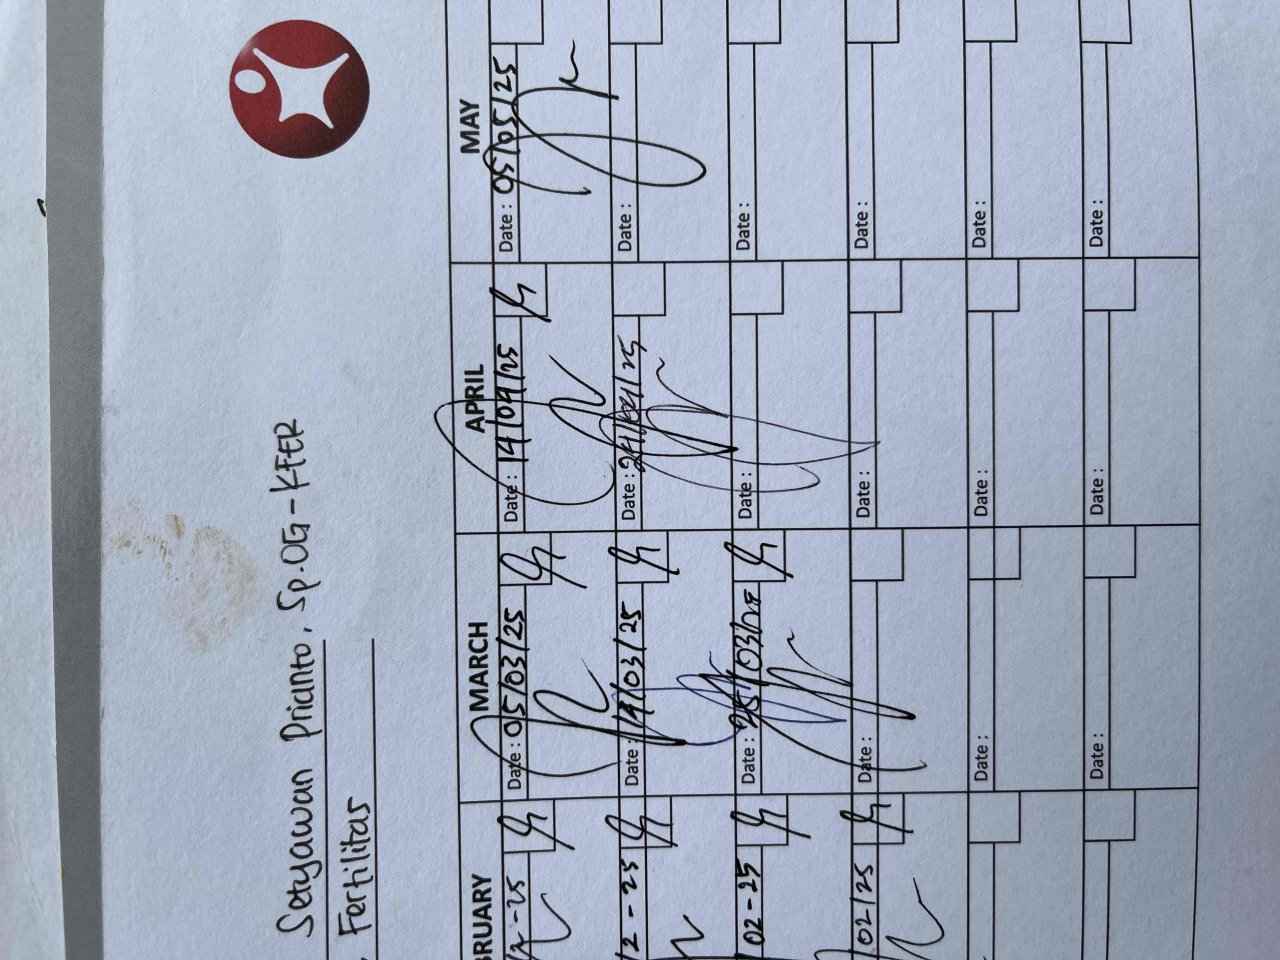 Setyawan Prianto, Sp.OG-KFER
Fertilitas
BRUARY MARCH APRIL MAY
-25 Date : 05/03/25 Date : 14/04/25 Date : 05/05/25
2-25 Date : 19/03/25 Date : 24/04/25 Date :
02-25 Date : 25/03/25 Date : Date :
02/25 Date : Date : Date :
Date : Date : Date :
Date : Date : Date :